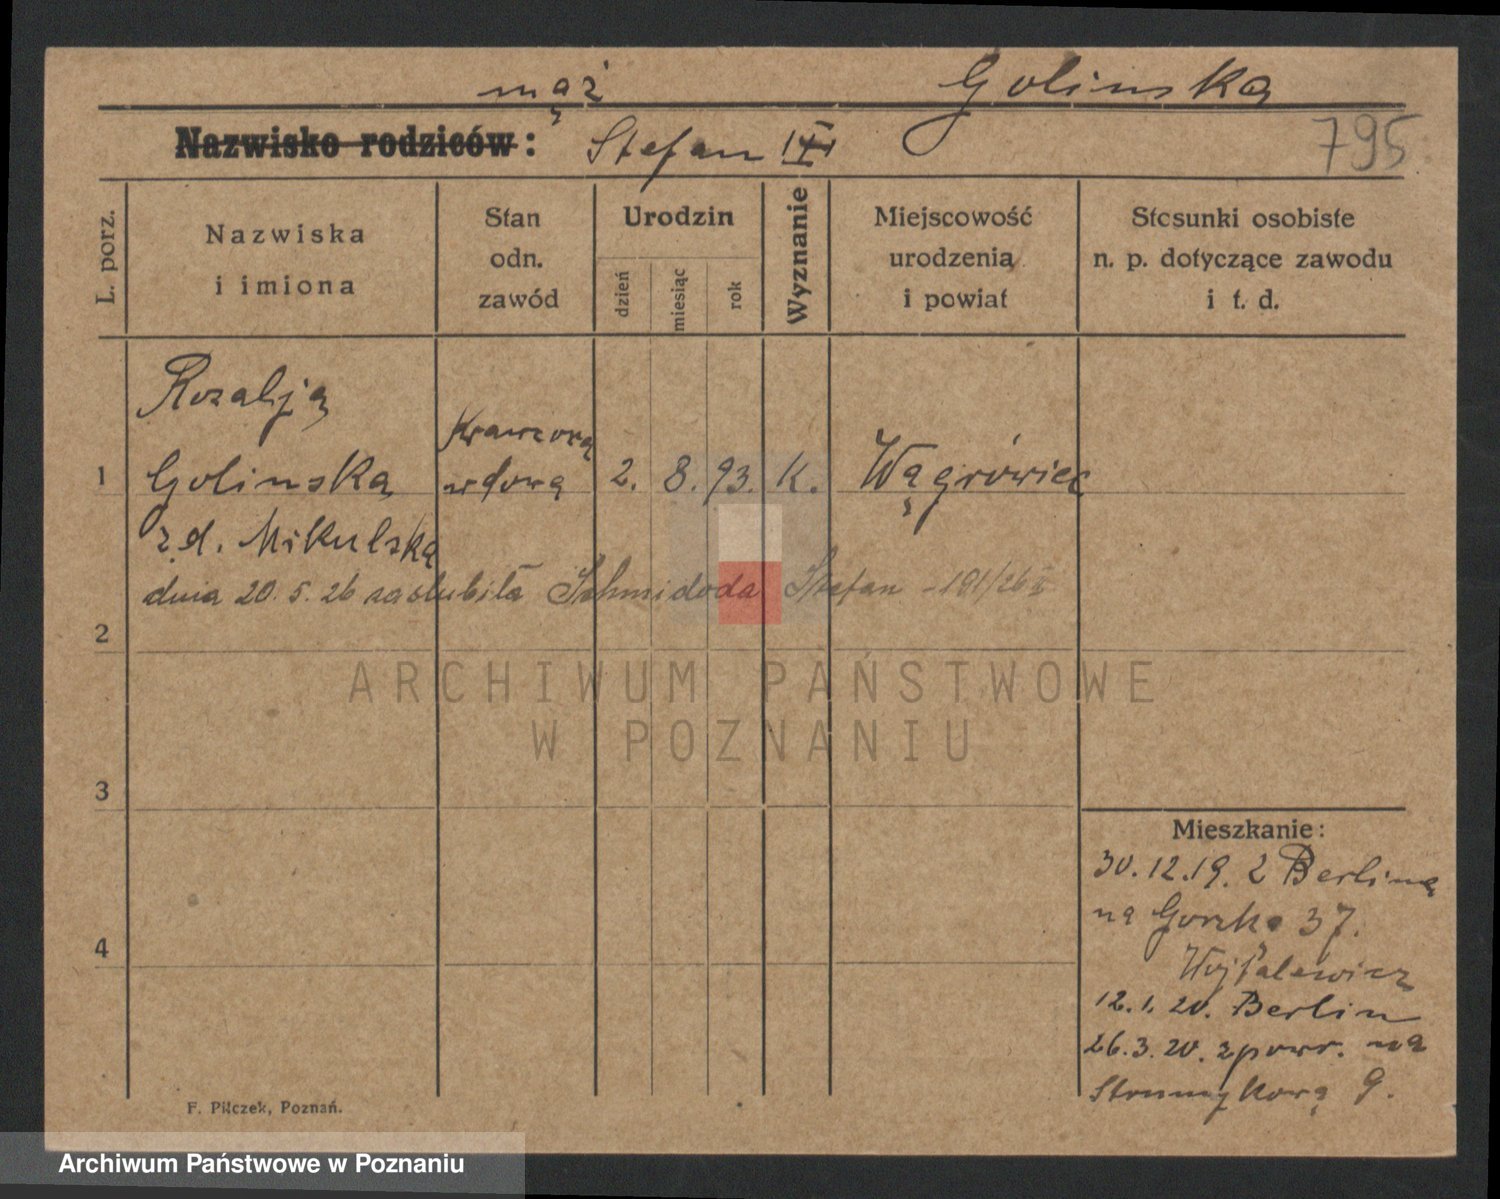 mąż Golinska
Nazwisko rodziców: Stefan
795
L. porz.
Nazwiska
i imiona
Stan
odn.
zawód
Urodzin
dzień
miesiąc
rok
Wyznanie
Miejscowość
urodzenia
i powiat
Stosunki osobiste
n. p. dotyczące zawodu
i t. d.
Rozalja
1 Golinska
z d. Mikulska
Krawcowa
wdowa
2. 8. 93. K. Wągrówiec
dnia 20. 5. 26 zaslubiła Schmidoda Stefan - 191/26
2
ARCHIWUM PAŃSTWOWE
W POZNANIU
3
4
Mieszkanie:
30.12.19. z Berlina
na 37.
12.1.20. Berlin
26.3.20. zpowr. na
Strumykową 9.
F. Pilczek, Poznań.
Archiwum Państwowe w Poznaniu